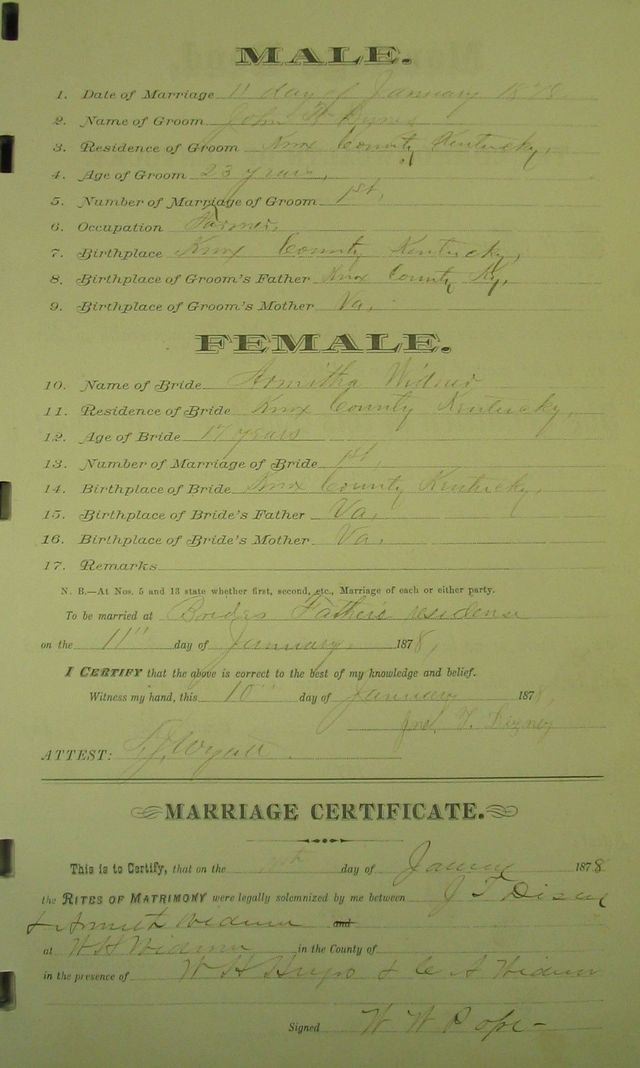 MALE.
1. Date of Marriage 11 day of January 1878
2. Name of Groom John
3. Residence of Groom Knox County Kentucky,
4. Age of Groom 23 years,
5. Number of Marriage of Groom 1st,
6. Occupation Farmer,
7. Birthplace Knox County Kentucky,
8. Birthplace of Groom's Father Knox County Ky,
9. Birthplace of Groom's Mother Va,
FEMALE.
10. Name of Bride Armitha
11. Residence of Bride Knox County Kentucky,
12. Age of Bride 17 years
13. Number of Marriage of Bride 1st,
14. Birthplace of Bride Knox County Kentucky,
15. Birthplace of Bride's Father Va,
16. Birthplace of Bride's Mother Va,
17. Remarks
N. B.—At Nos. 5 and 13 state whether first, second, etc., Marriage of each or either party.
To be married at Brides Father's residense
on the 11" day of January 1878,
I CERTIFY that the above is correct to the best of my knowledge and belief.
Witness my hand, this 10" day of January 1878,
Jno. T.
ATTEST:
MARRIAGE CERTIFICATE.
This is to Certify, that on the day of 1878
the RITES OF MATRIMONY were legally solemnized by me between J T
& and
at W H in the County of
in the presence of W H & C A
Signed W W Pope